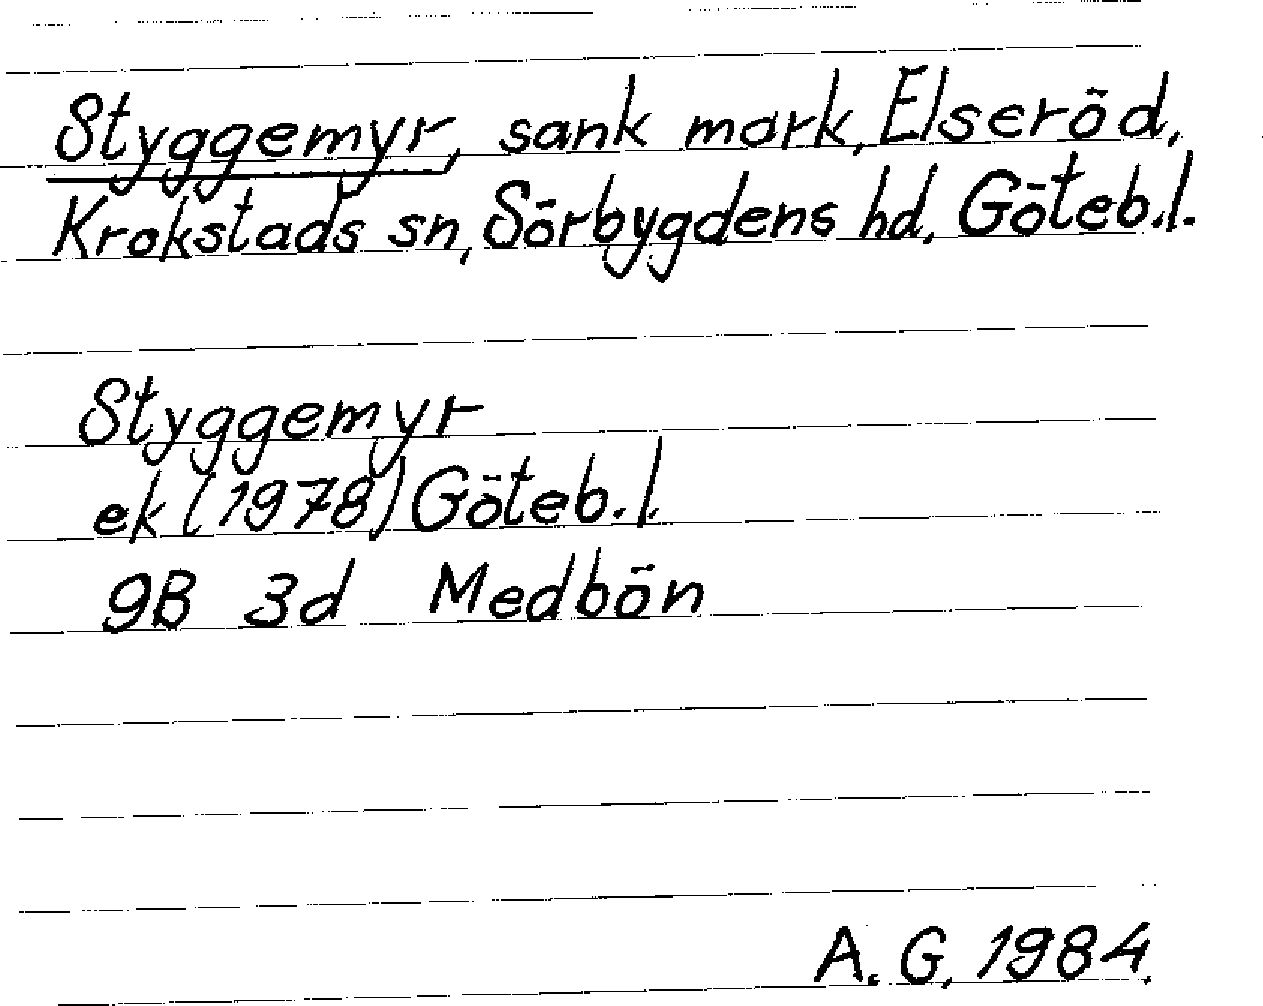 Styggemyr, sank mark, Elseröd,
Krokstads sn, Sörbygdens hd, Göteb.l.
Styggemyr
ek (1978) Göteb.l.
9B 3d Medbön
A.G. 1984.